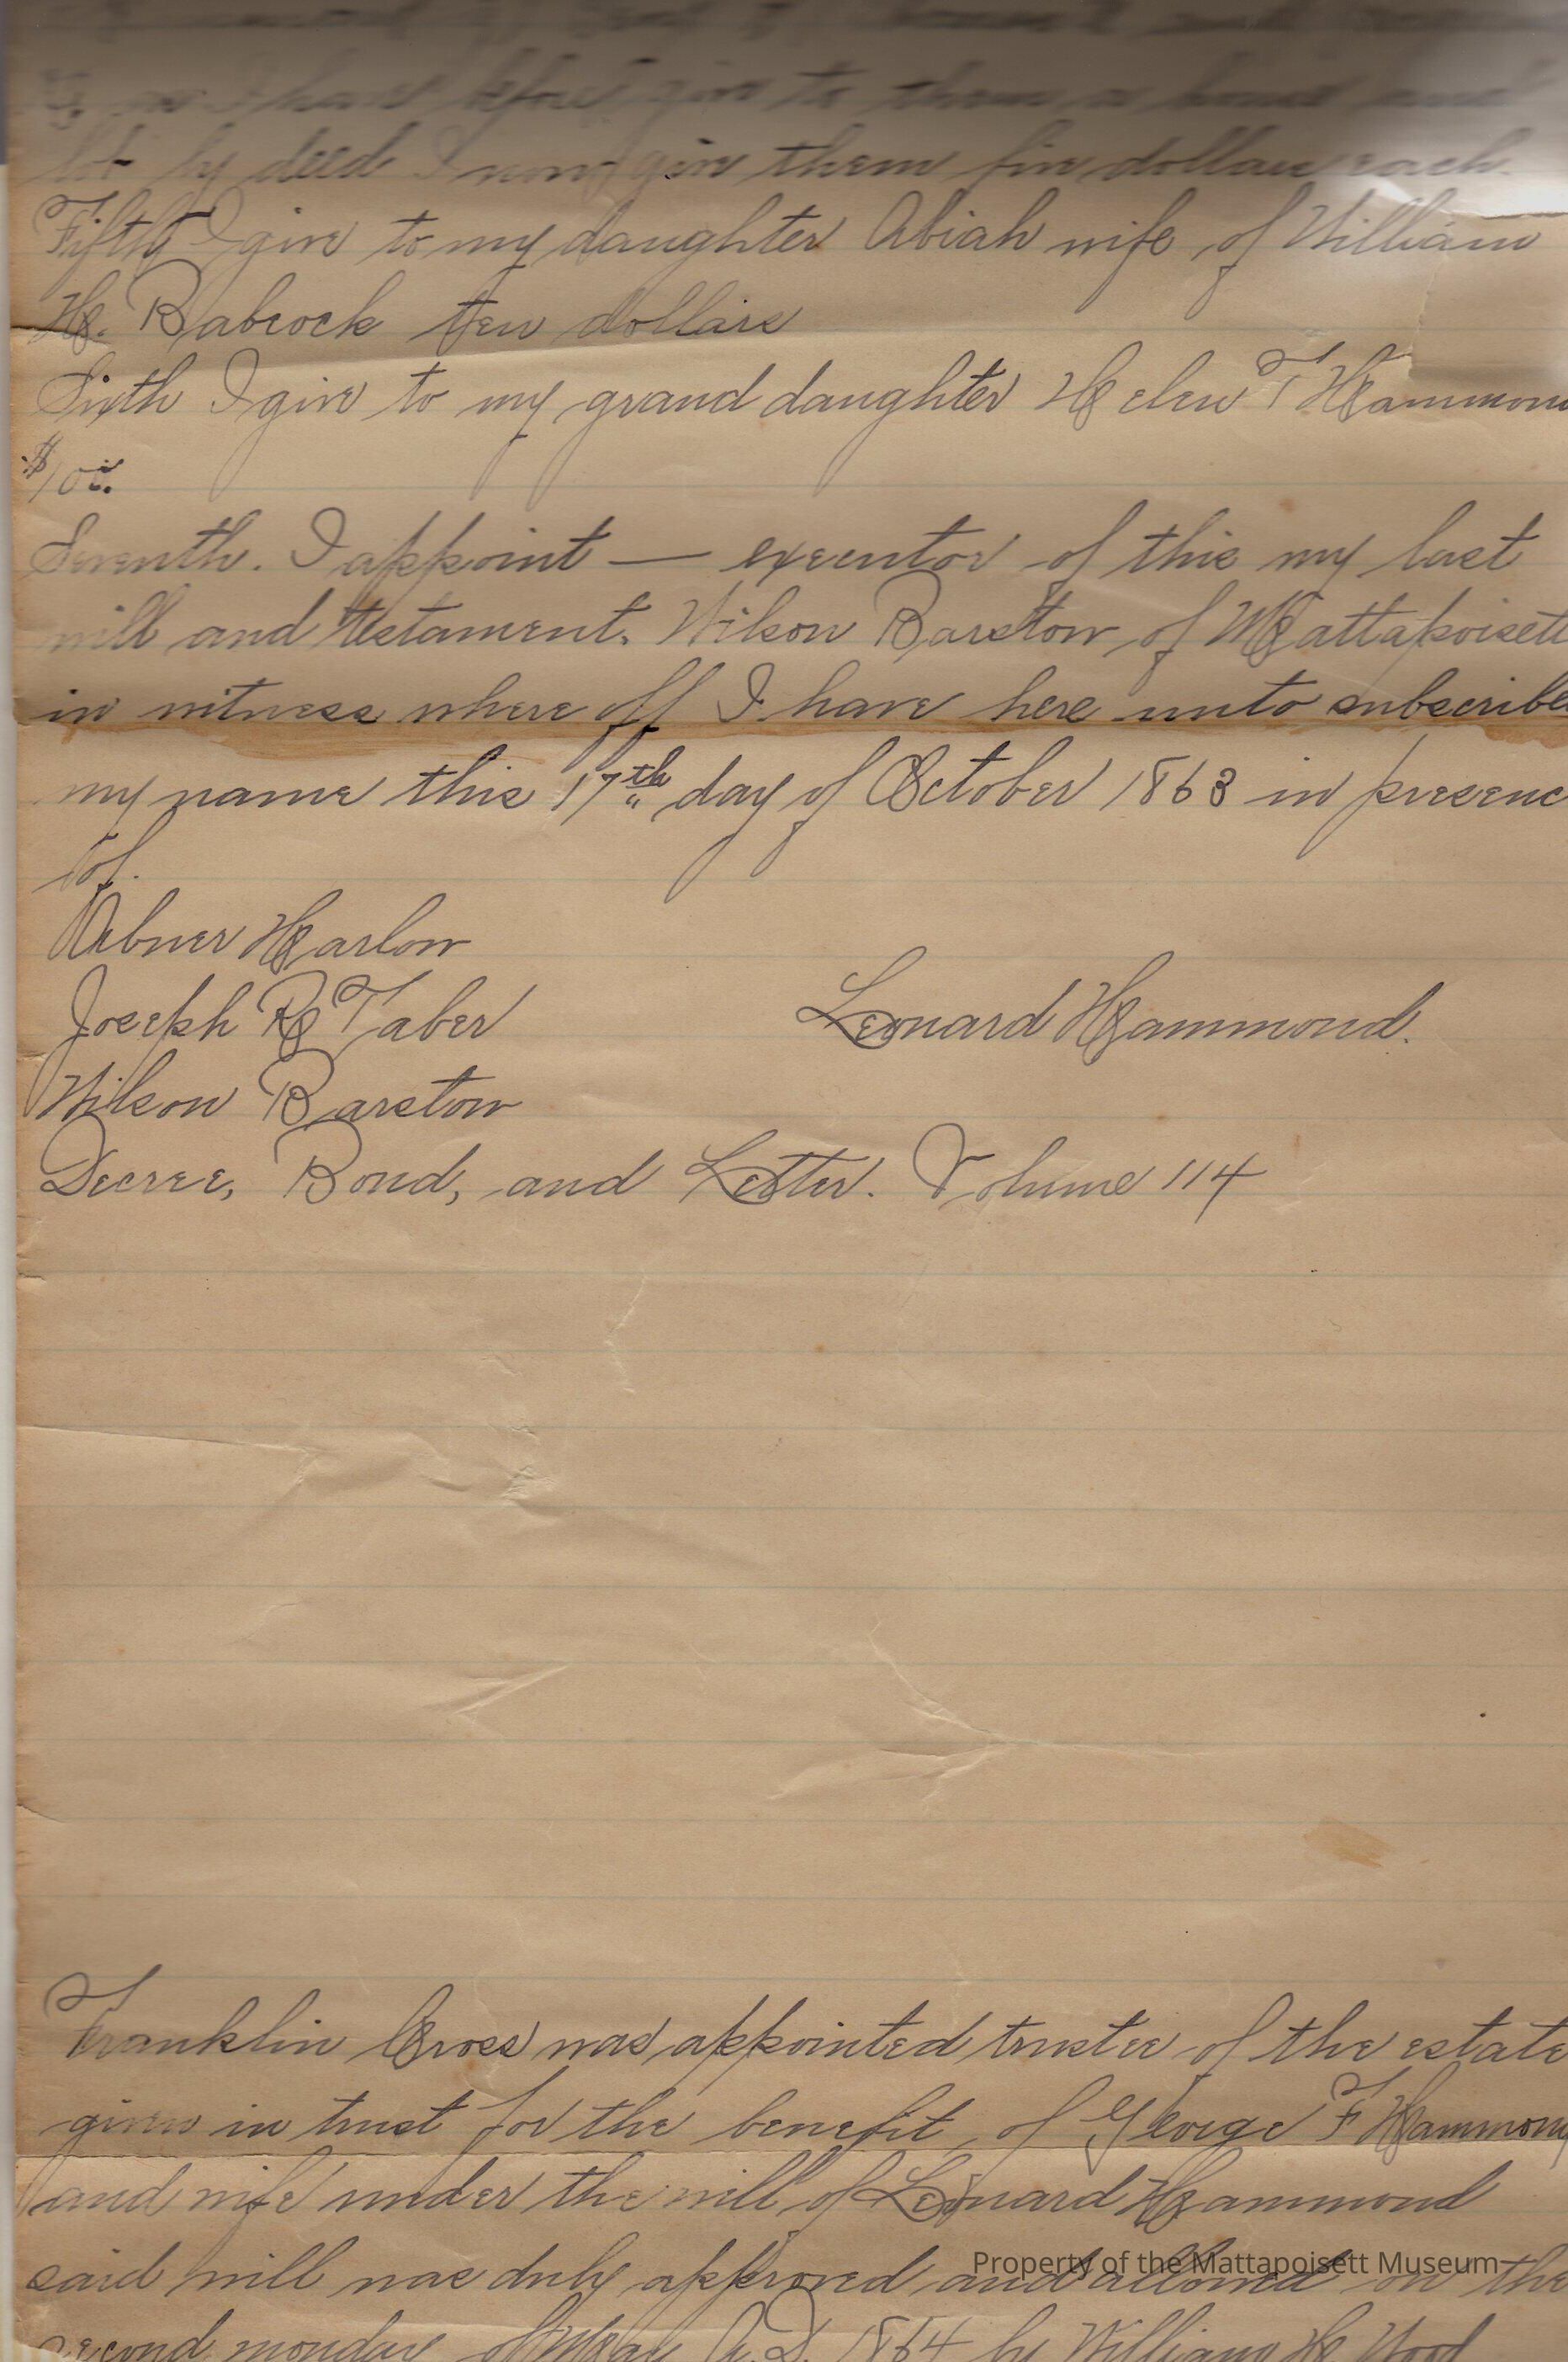 as I have before given to them a house and
lot by deed I now give them five dollars each.
Fifth I give to my daughter Abiah wife of William
H. Babcock ten dollars
Sixth I give to my grand daughter Helen T Hammon
Seventh. I appoint — executor of this my last
will and testament. Wilson Barstow of Mattapoisett
in witness where off I have here unto subscribe
my name this 17th day of October 1863 in presenc
of.
Abner Harlow
Joseph R Taber
Leonard Hammond.
Wilson Barstow
Decree, Bond, and Letter. Volume 114
Franklin Cross was appointed trustee of the estate
given in trust for the benefit of George F Hammon
and wife under the will of Leonard Hammond
said will was duly approved and allowed on the
second monday of May A.D. 1864 by William H Wood
Property of the Mattapoisett Museum